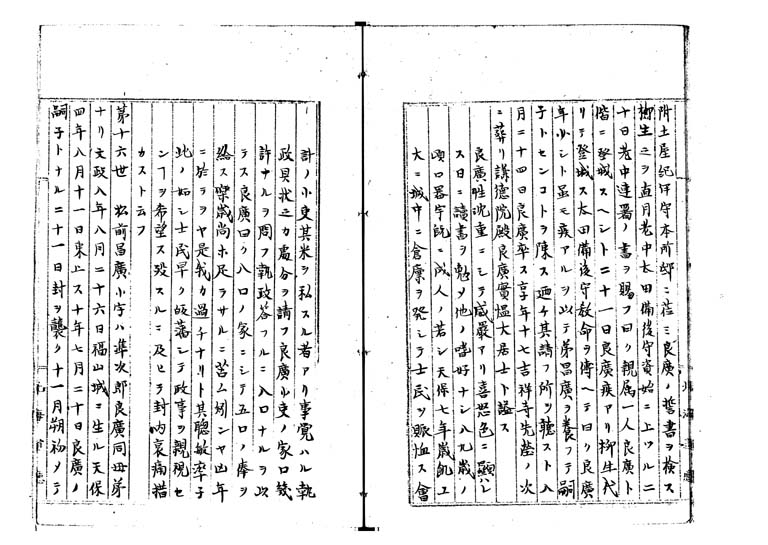 附土屋紀伊守本所邸ニ莅ミ良廣ノ誓書ヲ検ス
柳生之ヲ直月老中太田備後守資始ニ上ツル二
十日老中連署ノ書ヲ賜フ曰ク親属一人良廣ト
偕ニ登城スヘシト二十一日良廣疾アリ柳生代
リテ登城ス太田備後守教命ヲ傳ヘテ曰ク良廣
年少シト雖モ疾アルヲ以テ弟昌廣ヲ養フテ嗣
子トセンコトヲ陳ス廼チ其請フ所ヲ聴スト八
月二十四日良廣卒ス享年十七吉祥寺先塋ノ次
ニ葬リ講徳院殿良廣實温大居士ト謚ス
良廣性沈重ニシテ威嚴アリ喜怒色ニ顕ハレ
ス日ニ讀書ヲ勉メ他ノ嗜好ナシ八九歳ノ
頃ロ器宇既ニ成人ノ若シ天保七年歳飢ユ
大ニ城中ニ倉廩ヲ発シテ士民ヲ賑恤ス會
計ノ小吏其米ヲ私スル者アリ事覺ハル執
政具状之カ處分ヲ請フ良廣小吏ノ家口幾
許ナルヲ問フ執政答フルニ八口ナルヲ以
テス良廣曰ク八口ノ家ニシテ五口ノ奉ヲ
給ス樂歳尚ホ足ラサルニ苦ム矧ンヤ凶年
ニ於ヲヤ是我カ過チナリト其聰敏率子
此ノ如シ士民早ク皈藩シテ政事ヲ親視セ
ンヿヲ希望ス歿スルニ及ヒテ封内哀痛措
カスト云フ
第十六世 松前昌廣小字ハ準次郎良廣同母弟
ナリ文政八年八月二十六日福山城ニ生ル天保
四年八月十一日東上ス十年七月二十日良廣ノ
嗣子トナル二十一日封ヲ襲ク十一月朔初メテ